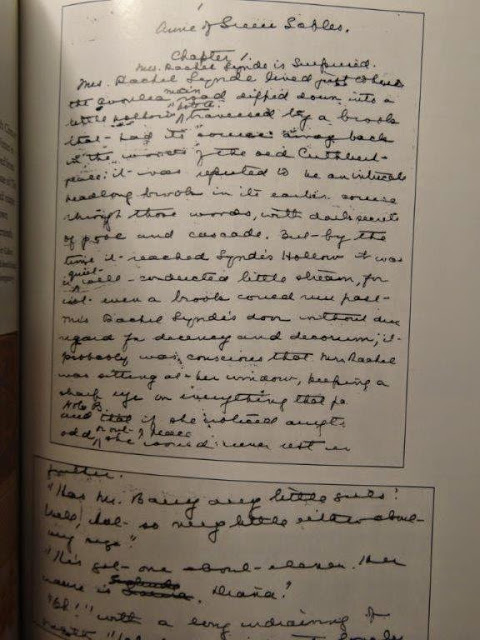 1
Anne of Green Gables.
Chapter 1.
Mrs. Rachel Lynde is Surprised.
Mrs. Rachel Lynde lived just where
the Avonlea main road dipped down into a
little hollow, Note A traversed by a brook
that had its source away back
in the woods of the old Cuthbert
place; it was reputed to be an intricate
headlong brook in its earlier course
through those woods, with dark secrets
of pool and cascade. But by the
time it reached Lynde's Hollow it was
a quiet well-conducted little stream, for
not even a brook could run past
Mrs Rachel Lynde's door without due
regard for decency and decorum; it
probably was conscious that Mrs. Rachel
was sitting at her window, keeping a
sharp eye on everything that pa
Note B.
and that if she noticed aught
odd, or out of place she would never rest un
further.
"Has Mr. Barry any little girls?
Well, not so very little either about
my age."
"He's got one about eleven. Her
name is Diana."
"Oh!" with a long indrawing of